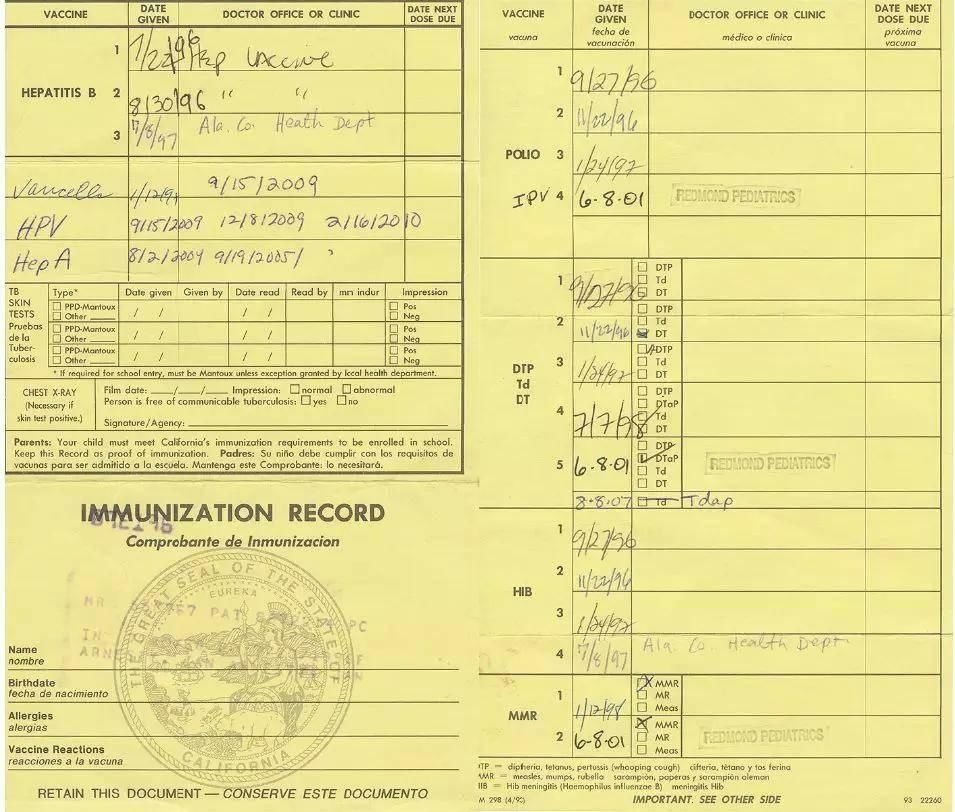 VACCINE DATE GIVEN DOCTOR OFFICE OR CLINIC DATE NEXT DOSE DUE
HEPATITIS B
1 Hep Vaccine
2 8/30/96 " "
3 7/8/97 Ala. Co. Heath Dept
9/15/2009
HPV 9/15/2009 12/8/2009 2/16/2010
Hep A 8/2/2004 9/19/2005/
TB SKIN TESTS Pruebas de la Tuber-culosis
Type* Date given Given by Date read Read by mm indur Impression
PPD-Mantoux / / / / Pos
Other ____ Neg
PPD-Mantoux / / / / Pos
Other ____ Neg
PPD-Mantoux / / / / Pos
Other ____ Neg
* If required for school entry, must be Mantoux unless exception granted by local health department.
CHEST X-RAY
(Necessary if
skin test positive.)
Film date: ___/___/___ Impression: normal abnormal
Person is free of communicable tuberculosis: yes no
Signature/Agency:
Parents: Your child must meet California's immunization requirements to be enrolled in school.
Keep this Record as proof of immunization. Padres: Su niño debe cumplir con los requisitos de
vacunas para ser admitido a la escuela. Mantenga este Comprobante: lo necesitará.
IMMUNIZATION RECORD
Comprobante de Inmunizacion
THE GREAT SEAL OF THE STATE OF CALIFORNIA
EUREKA
Name
nombre
Birthdate
fecha de nacimiento
Allergies
alergias
Vaccine Reactions
reacciones a la vacuna
RETAIN THIS DOCUMENT — CONSERVE ESTE DOCUMENTO
VACCINE DATE GIVEN DOCTOR OFFICE OR CLINIC DATE NEXT DOSE DUE
vacuna fecha de vacunación médico o clínica próxima vacuna
POLIO
1 9/27/96
2 11/22/96
3 1/24/97
IPV 4 6-8-01 REDMOND PEDIATRICS
DTP
Td
DT
1 9/27/96 DTP Td DT
2 11/22/96 DTP Td DT
3 1/24/97 DTP Td DT
4 7/7/98 DTP DTaP Td DT
5 6-8-01 DTP DTaP Td DT REDMOND PEDIATRICS
8-8-07 Td Tdap
HIB
1 9/27/96
2 11/22/96
3 1/24/97
4 7/8/97 Ala. Co. Health Dept.
MMR
1 1/12/98 MMR MR Meas
2 6-8-01 MMR MR Meas REDMOND PEDIATRICS
= diptheria, tetanus, pertussis (whooping cough) difteria, tétano y tos ferina
= measles, mumps, rubella sarampión, paperas y sarampión aleman
= Hib meningitis (Haemophilus influenzae B) meningitis Hib
298 (4/92) IMPORTANT. SEE OTHER SIDE 93 22260